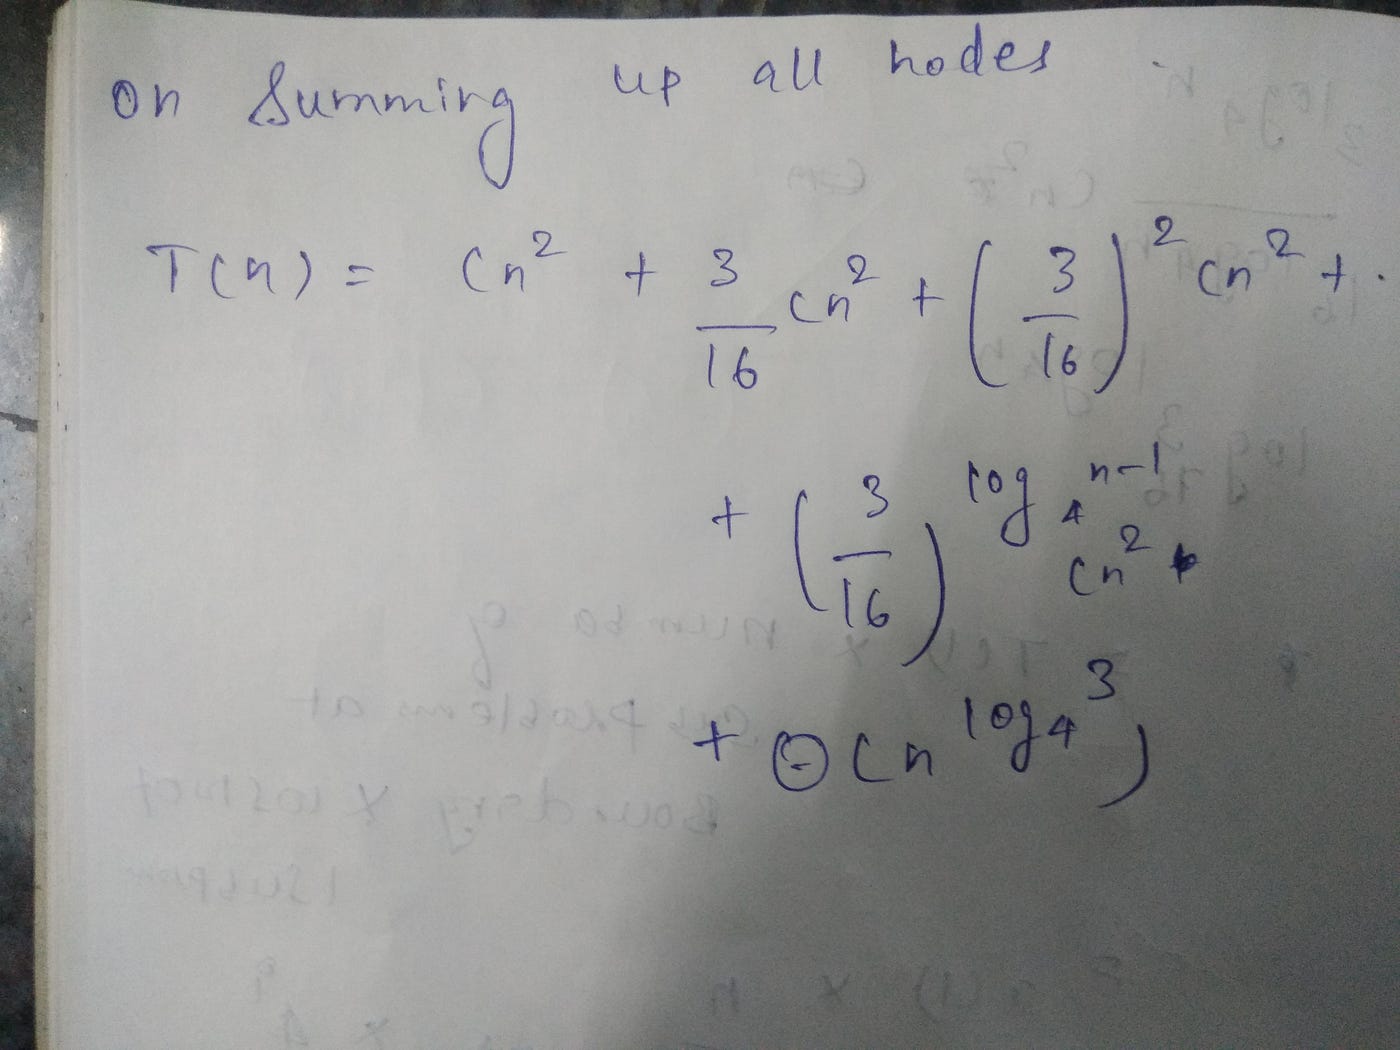 On Summing up all nodes .
T(n) = Cn² + 3/16 cn² + (3/16)² cn² + .
+ (3/16)^(log₄ n-1) cn² +
+ Θ(n^(log₄ 3))